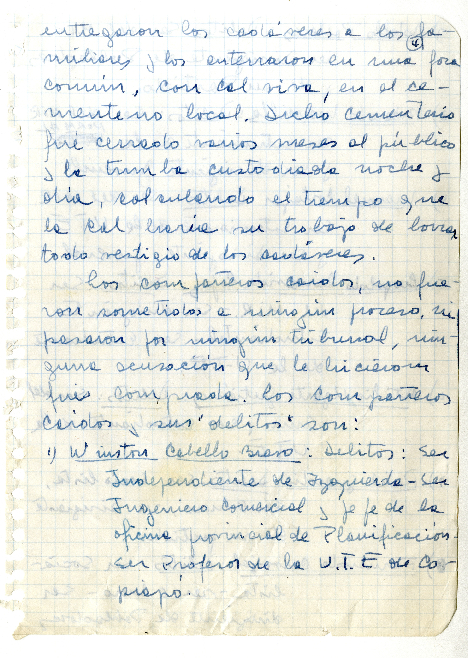 entregaron los cadáveres a los fa-
④
miliares y los enterraron en una fosa
común, con cal viva, en el ce-
menterio local. Dicho cementerio
fué cerrado varios meses al público
y la tumba custodiada noche y
día, calculando el tiempo que
la cal haría su trabajo de borrar
todo vestigio de los cadáveres.
Los compañeros caidos, no fue-
ron sometidos a ningún proceso, ni
pasaron por ningún tribunal, nin-
guna acusación que le hicieron
fué comprobada. Los compañeros
caídos y sus "delitos" son:
1) Winston Cabello Bravo: Delitos: Ser
Independiente de Izquierda - Ser
Ingeniero Comercial y jefe de la
oficina provincial de Planificación-
Ser Profesor de la U.T.E de Co-
piapó.